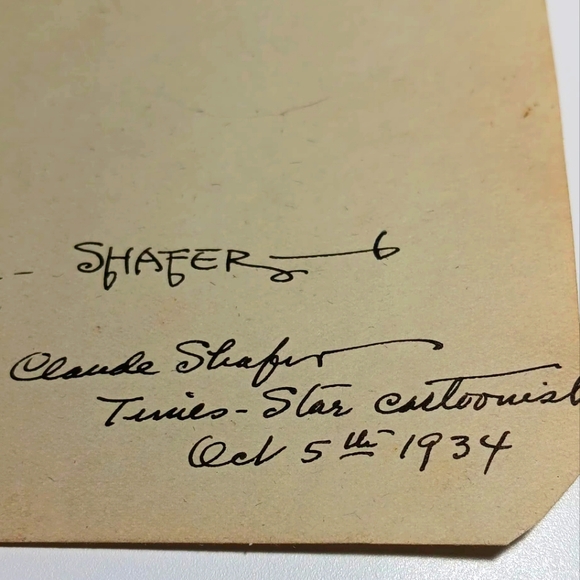 - SHAFER
Claude Shafer
Times-Star cartoonist
Oct 5th 1934